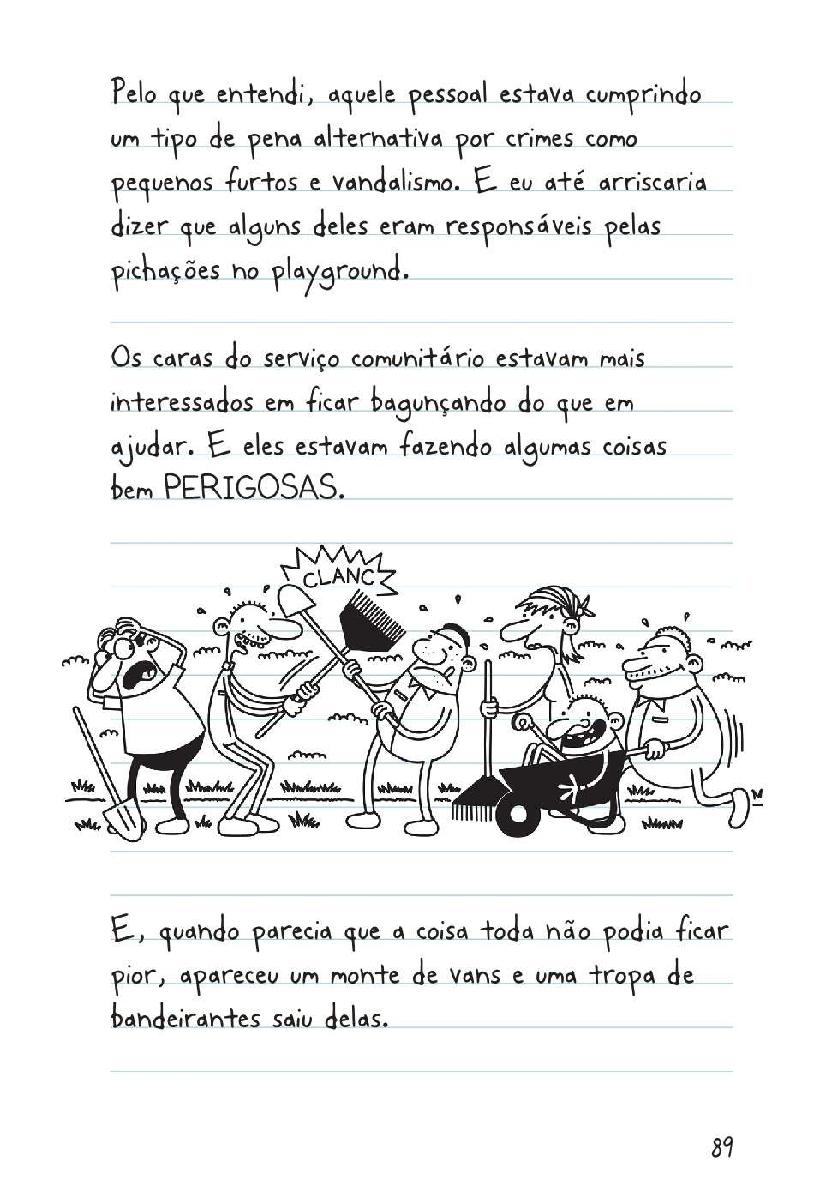 Pelo que entendi, aquele pessoal estava cumprindo
um tipo de pena alternativa por crimes como
pequenos furtos e vandalismo. E eu até arriscaria
dizer que alguns deles eram responsáveis pelas
pichações no playground.
Os caras do serviço comunitário estavam mais
interessados em ficar bagunçando do que em
ajudar. E eles estavam fazendo algumas coisas
bem PERIGOSAS.
CLANC
E, quando parecia que a coisa toda não podia ficar
pior, apareceu um monte de vans e uma tropa de
bandeirantes saiu delas.
89